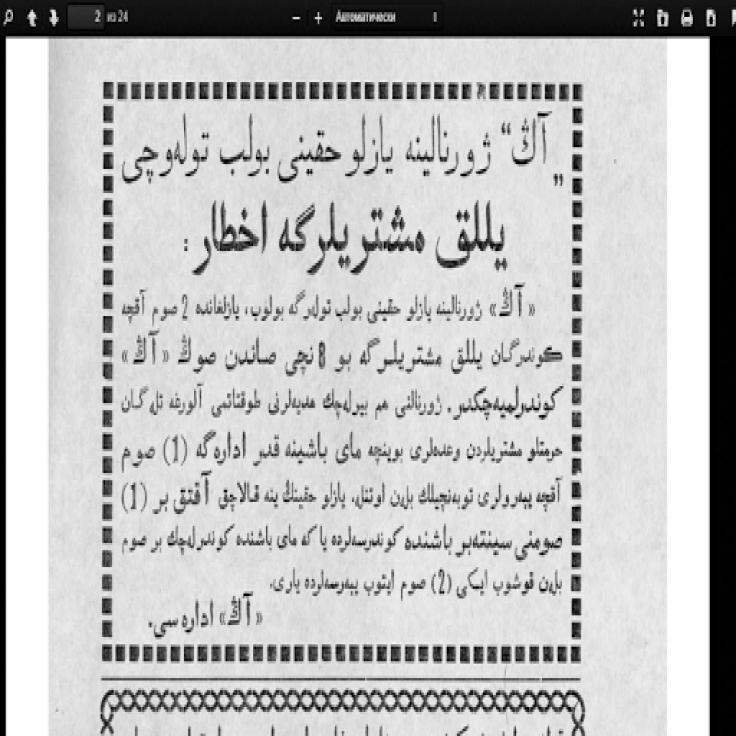 2 из 24
Автоматически
„آڭ“ ژورنالینه یازلو حقینی بولب تولەوچی
یللق مشتریلرگه اخطار :
«آڭ» ژورنالینه یازلو حقینی بولب تولەرگه بولوب، یازلغانده 2 صوم آقچه
کوندرگان یللق مشتریلرگه بو 8 نچی صاندن صوڭ «آڭ»
کوندرلمیەچکدر. ژورنالنی هم بیرلەچك هدیەلرنی طوقتاتمی آلورغه تلەگان
حرمتلو مشتریلردن وعدەلری بوینچه مای باشینه قدر اداره‌گه (1) صوم
آقچه یبەرولری توبەنچیلك بلەن اوتنل. یازلو حقینڭ ینه قالاچق آقتق بر (1)
صومنی سینتەبر باشنده کوندرسەلرده یا که مای باشنده کوندرلەچك بر صوم
بلەن قوشوب ایکی (2) صوم ایتوب یبەرسەلرده یاری.
«آڭ» اداره سی.